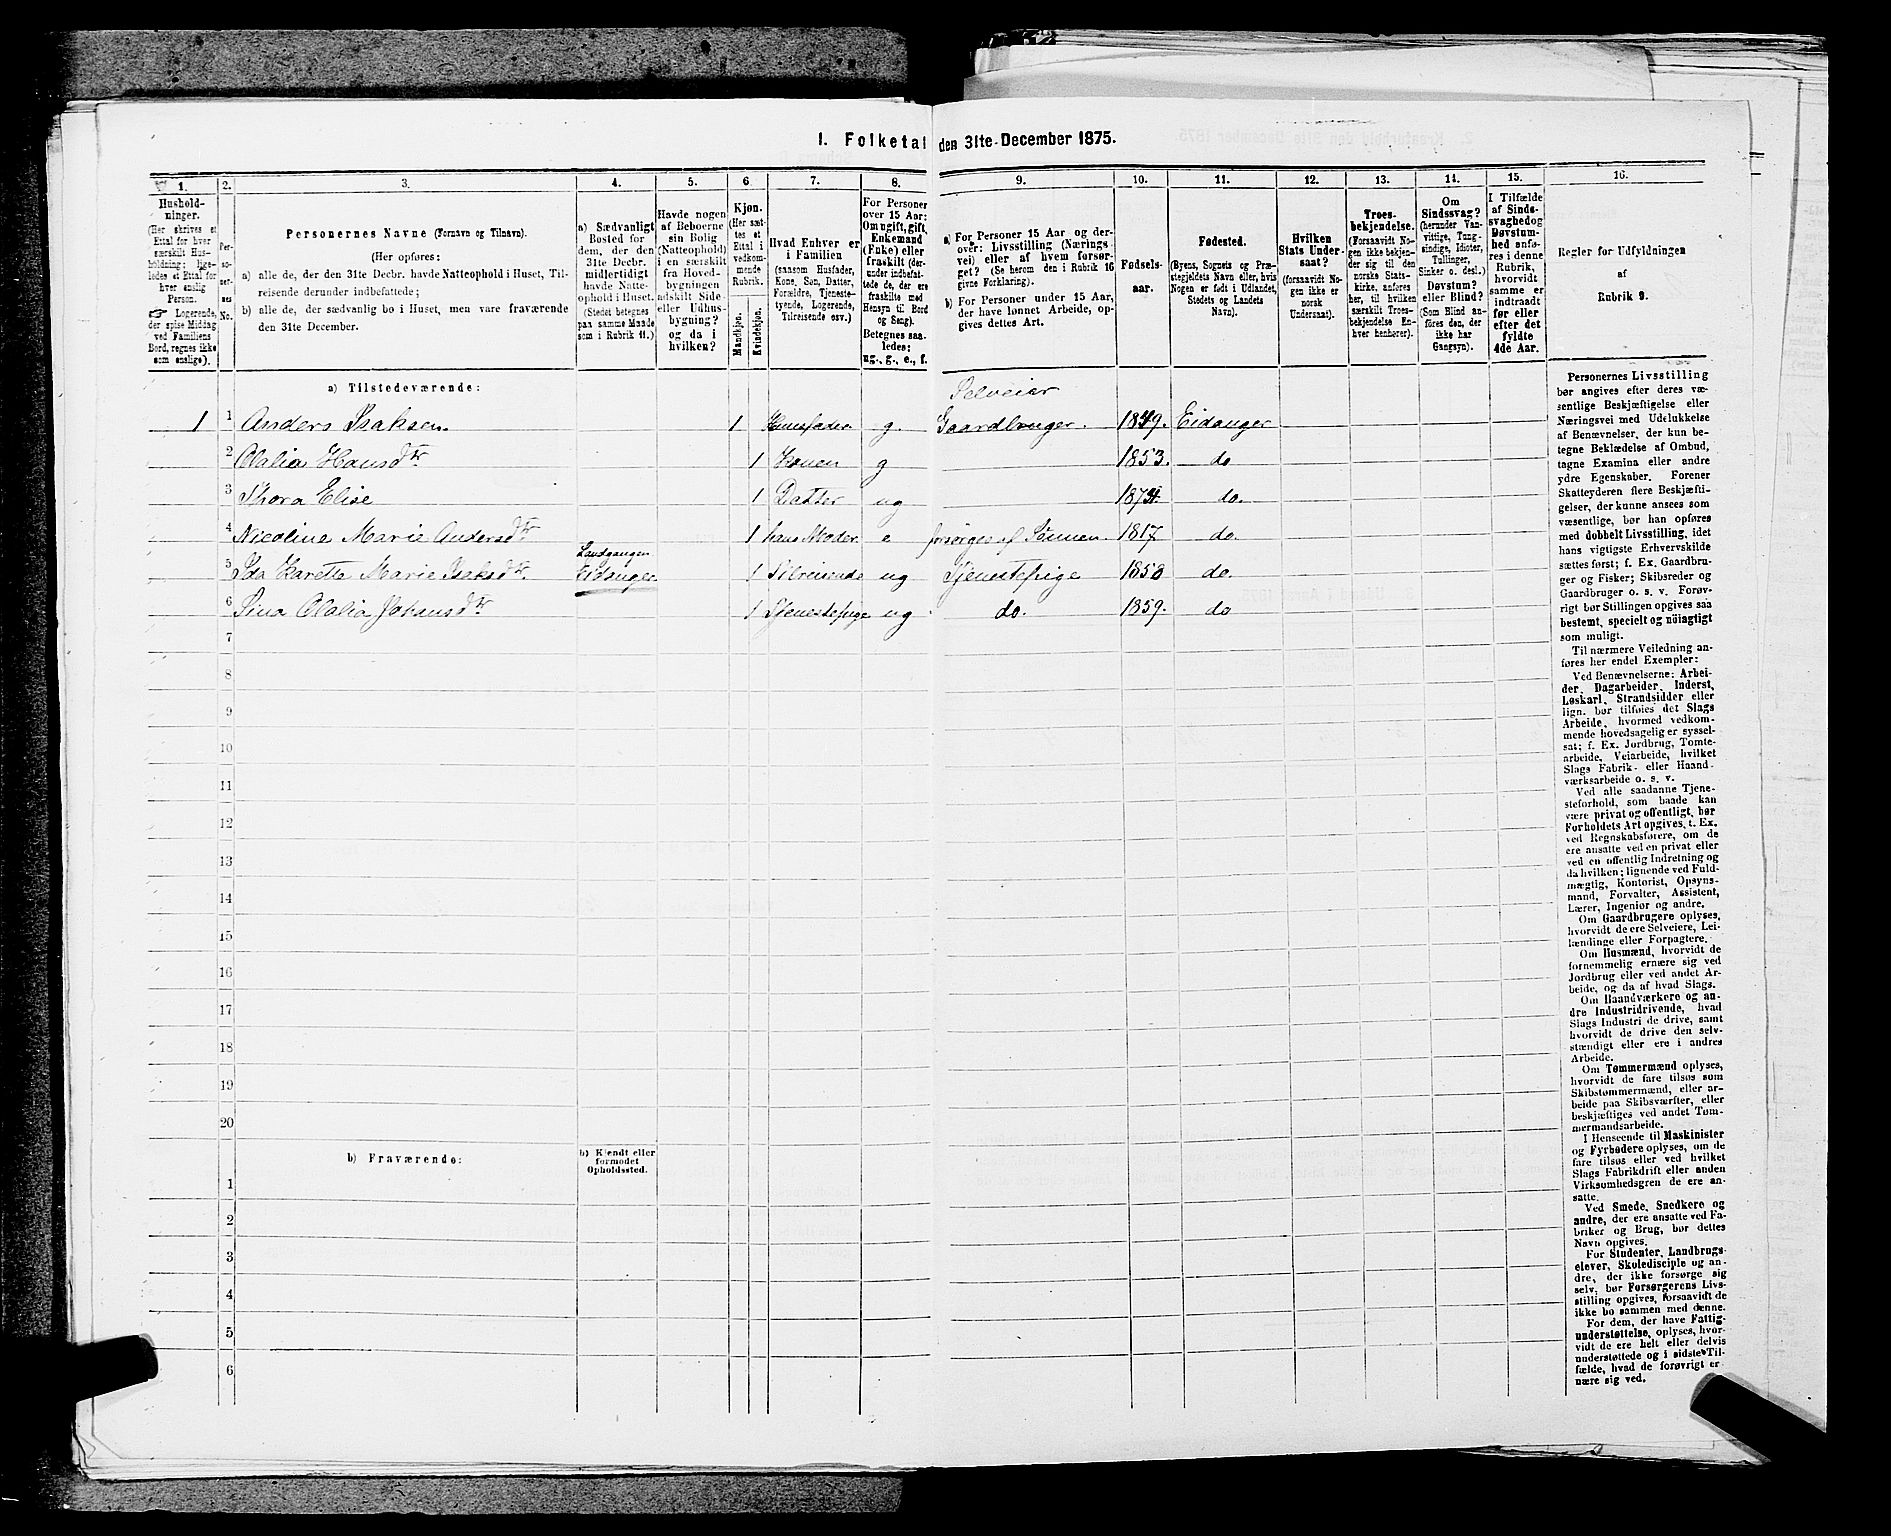 1. Folketal den 31te December 1875.
1. 2. 3. 4. 5. 6. 7. 8. 9. 10. 11. 12. 13. 14. 15. 16.
Hushold-
ninger.
(Her skrives et
Ettal for hver
særskilt Hus-
holdning; lige-
ledes et Ettal for
hver enslig
Person.
☞ Logerende,
der spise Middag
ved Familiens
Bord, regnes ikke
som enslige).
Per-
so-
ner-
nes
No.
Personernes Navne (Fornavn og Tilnavn).
(Her opføres:
a) alle de, der den 31te Decbr. havde Natteophold i Huset, Til-
reisende derunder indbefattede;
b) alle de, der sædvanlig bo i Huset, men vare fraværende
den 31te December.
a) Sædvanligt
Bosted for
dem, der den
31te Decbr.
midlertidigt
havde Natte-
ophold i Huset.
(Stedet betegnes
paa samme Maade
som i Rubrik 11.)
Havde nogen
af Beboerne
sin Bolig
(Natteophold)
i en særskilt
fra Hoved-
bygningen
adskilt Side-
eller Udhus-
bygning?
og da i
hvilken?
Kjøn.
(Her sæt-
tes et
Ettal i
vedkom-
mende
Rubrik.
Mandkjøn.
Kvindekjøn.
Hvad Enhver er
i Familien
(saasom Husfader,
Kone, Søn, Datter,
Forældre, Tjeneste-
tyende, Logerende,
Tilreisende osv.)
For Personer
over 15 Aar:
Om ugift, gift,
Enkemand
(Enke) eller
fraskilt (der-
under indbefat-
tede de, der ere
fraskilte med
Hensyn til Bord
og Seng).
Betegnes saa-
ledes:
ug., g., e., f.
a) For Personer 15 Aar og der-
over: Livsstilling (Nærings-
vei) eller af hvem forsør-
get? (Se herom den i Rubrik 16
givne Forklaring).
b) For Personer under 15 Aar,
der have lønnet Arbeide, op-
gives dettes Art.
Fødsels-
aar.
Fødested.
(Byens, Sognets og Præ-
stegjeldets Navn eller, hvis
Nogen er født i Udlandet,
Stedets og Landets
Navn).
Hvilken
Stats Under-
saat?
(forsaavidt No-
gen ikke er
norsk
Undersaat).
Troes-
bekjendelse.
(Forsaavidt No-
gen ikke bekjen-
der sig til den
norske Stats-
kirke, anføres
her, til hvilken
særskilt Troes-
bekjendelse En-
hver henhører).
Om
Sindssvag?
(herunder Van-
vittige, Tung-
sindige, Idioter,
Tullinger,
Sinker o. desl.)
Døvstum?
eller Blind?
(Som Blind an-
føres den, der
ikke har
Gangsyn).
I Tilfælde
af Sinds-
svaghed og
Døvstum-
hed anfø-
res i denne
Rubrik,
hvorvidt
samme er
indtraadt
før eller
efter det
fyldte
4de Aar.
Regler for Udfyldningen
af
Rubrik 9.
a) Tilstedeværende:
Selveier
1 1 Anders Isaksen. 1 Husfader g. Gaardbruger. 1849. Eidanger
2 Olalia Hansdtr 1 Konen g 1853. do
3 Thora Elise 1 Datter ug 1874. do.
4 Nicoline Marie Andersdtr 1 hans Moder e forsørges af Sønnen. 1817 do.
Landgangen
5 Ida Karette Marie Isaksdtr Eidanger 1 Tilreisende ug Tjenestepige 1858 do.
6 Sina Olalia Johansdtr 1 Tjenestepige ug do. 1859. do
7
8
9
10
11
12
13
14
15
16
17
18
19
20
b) Fraværende: b) Kjendt eller
formodet
Opholdssted.
1
2
3
4
5
6
Personernes Livsstilling
bør angives efter deres væ-
sentlige Beskjæftigelse eller
Næringsvei med Udelukkelse
af Benævnelser, der kun be-
tegne Beklædelse af Ombud,
tagne Examina eller andre
ydre Egenskaber. Forener
Skatteyderen flere Beskjæfti-
gelser, der kunne ansees som
væsentlige, bør han opføres
med dobbelt Livsstilling, idet
hans vigtigste Erhvervskilde
sættes først; f. Ex. Gaardbru-
ger og Fisker; Skibsreder og
Gaardbruger o. s. v. Forøv-
rigt bør Stillingen opgives saa
bestemt, specielt og nöiagtigt
som muligt.
Til nærmere Veiledning an-
føres her endel Exempler:
Ved Benævnelserne: Arbei-
der, Dagarbeider, Inderst,
Løskarl, Strandsidder eller
lign. bør tilføies det Slags
Arbeide, hvormed vedkom-
mende hovedsagelig er syssel-
sat; f. Ex. Jordbrug, Tomte-
arbeide, Veiarbeide, hvilket
Slags Fabrik- eller Haand-
værksarbeide o. s. v.
Ved alle saadanne Tjene-
steforhold, som baade kan
være privat og offentligt, bør
Forholdets Art opgives, t. Ex.
ved Regnskabsførere, om de
ere ansatte ved en privat eller
ved en offentlig Indretning og
da hvilken; lignende ved Fuld-
mægtig, Kontorist, Opsyns-
mand, Forvalter, Assistent,
Lærer, Ingeniør og andre.
Om Gaardbrugere oplyses,
hvorvidt de ere Selveiere, Lei-
lændinge eller Forpagtere.
Om Husmænd, hvorvidt de
fornemmelig ernære sig ved
Jordbrug eller ved andet Ar-
beide, og da af hvad Slags.
Om Haandværkere og an-
dre Industridrivende, hvad
Slags Industri de drive, samt
hvorvidt de drive den selv-
stændigt eller ere i andres
Arbeide.
Om Tømmermænd oplyses,
hvorvidt de fare tilsøs som
Skibstømmermænd, eller ar-
beide paa Skibsværfter, eller
beskjæftiges ved andet Tøm-
mermandsarbeide.
I Henseende til Maskinister
og Fyrbødere oplyses, om de
fare tilsøs eller ved hvilket
Slags Fabrikdrift eller anden
Virksomhedsgren de ere an-
satte.
Ved Smede, Snedkere og
andre, der ere ansatte ved Fa-
briker og Brug, bør dettes
Navn opgives.
For Studenter, Landbrugs-
elever, Skoledisciple og an-
dre, der ikke forsørge sig
selv, bør Forsørgerens Livs-
stilling opgives, forsaavidt de
ikke bo sammen med denne.
For dem, der have Fattig-
understøttelse, oplyses, hvor-
vidt de ere helt eller delvis
understøttede og i sidste Til-
fælde, hvad de forøvrigt er-
nære sig ved.